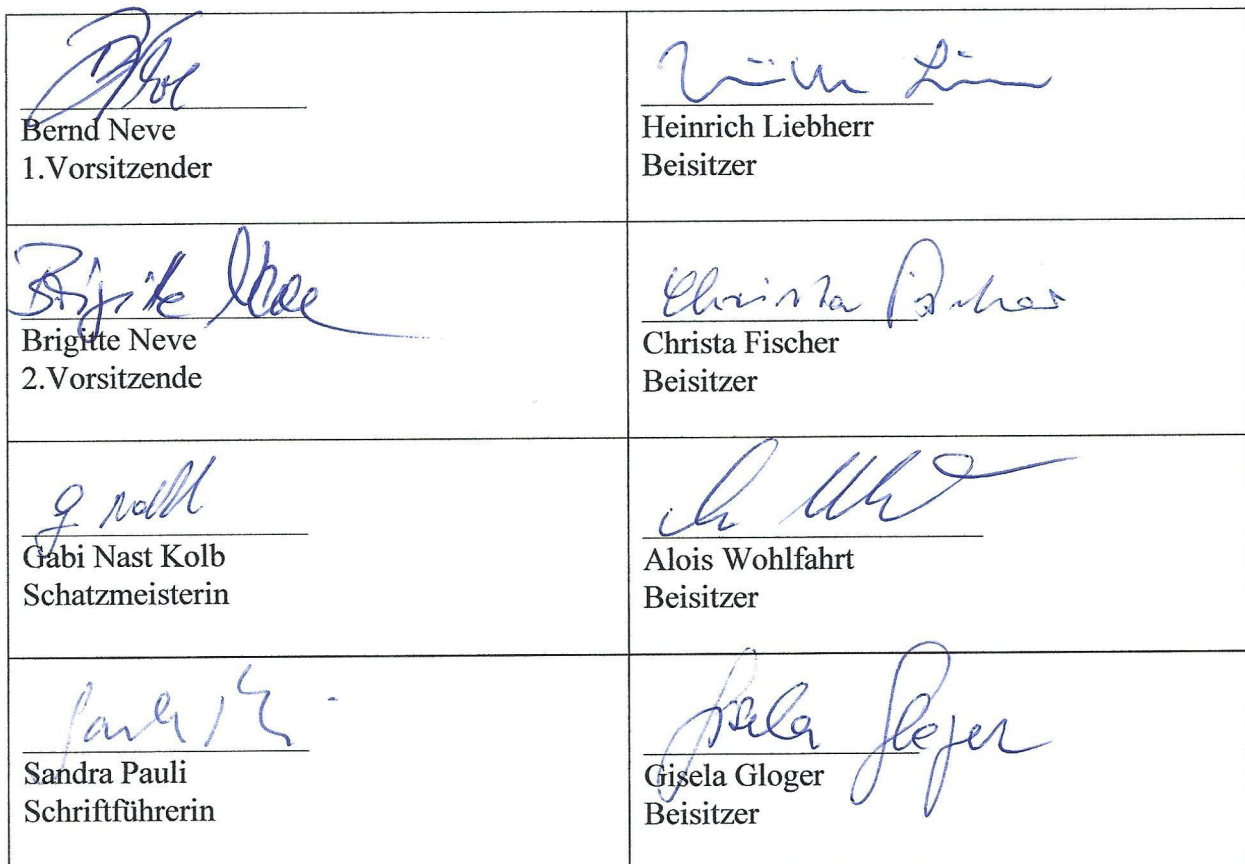 Bernd Neve
1.Vorsitzender
Heinrich Liebherr
Beisitzer
Brigitte Neve
Brigitte Neve
2.Vorsitzende
Christa Fischer
Christa Fischer
Beisitzer
Gabi Nast Kolb
Schatzmeisterin
Alois Wohlfahrt
Beisitzer
Sandra Pauli
Schriftführerin
Gisela Gloger
Gisela Gloger
Beisitzer